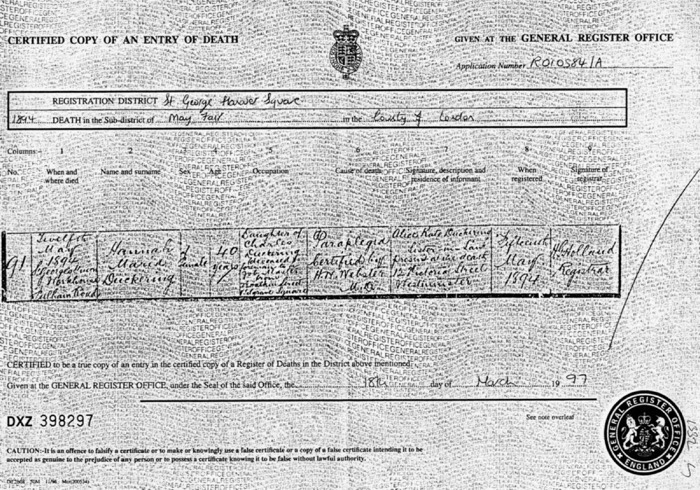 CERTIFIED COPY OF AN ENTRY OF DEATH
GIVEN AT THE GENERAL REGISTER OFFICE
Application Number R010584/A
REGISTRATION DISTRICT St George Hanover Square
1894 DEATH in the Sub-district of May Fair in the County of London
Columns:- 1 2 3 4 5 6 7 8 9
No. When and where died Name and surname Sex Age Occupation Cause of death Signature, description and residence of informant When registered Signature of registrar
91
Twelfth
May
1894
Workhouse
Fulham Road
Hannah
Maria
Duckering
Female
40
years
Daughter of
Charles
Duckering
Paraplegia
Certified by
H.W. Webster
M.D.
Alice Kate Duckering
Sister-in-law
present at the death
12 Victoria Street
Westminster
Fifteenth
May
1894
Holland
Registrar
CERTIFIED to be a true copy of an entry in the certified copy of a Register of Deaths in the District above mentioned.
Given at the GENERAL REGISTER OFFICE, under the Seal of the said Office, the 18th day of March 1997
DXZ 398297
See note overleaf
CAUTION:-It is an offence to falsify a certificate or to make or knowingly use a false certificate or a copy of a false certificate intending it to be
accepted as genuine to the prejudice of any person or to possess a certificate knowing it to be false without lawful authority.
GENERAL REGISTER OFFICE
ENGLAND